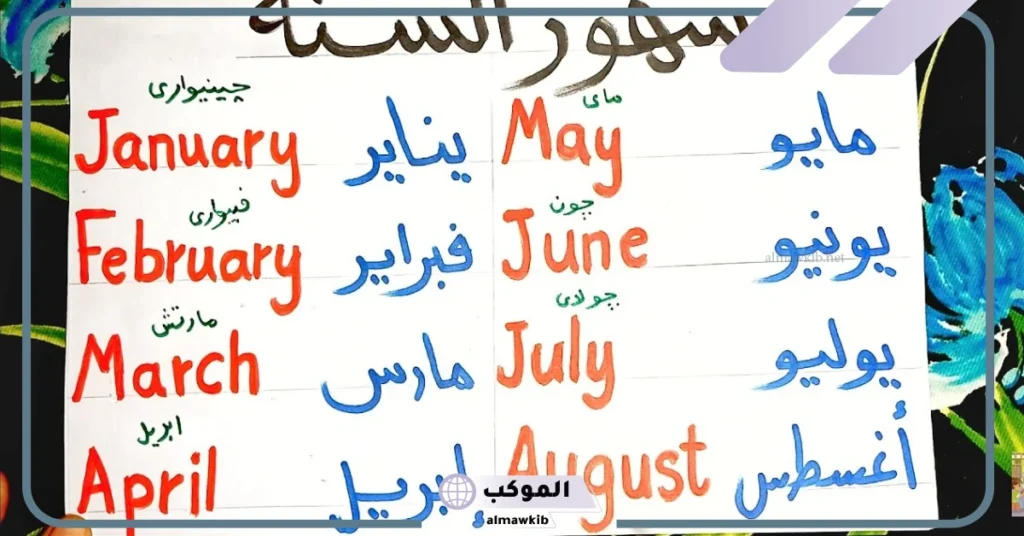 شهور السنة
چينيواري
January يناير
فيبواري
February فبراير
مارتش
March مارس
ابريل
April إبريل
ماي
May مايو
چون
June يونيو
almawkib.net
چولاي
July يوليو
August أغسطس
الموكب
almawkib